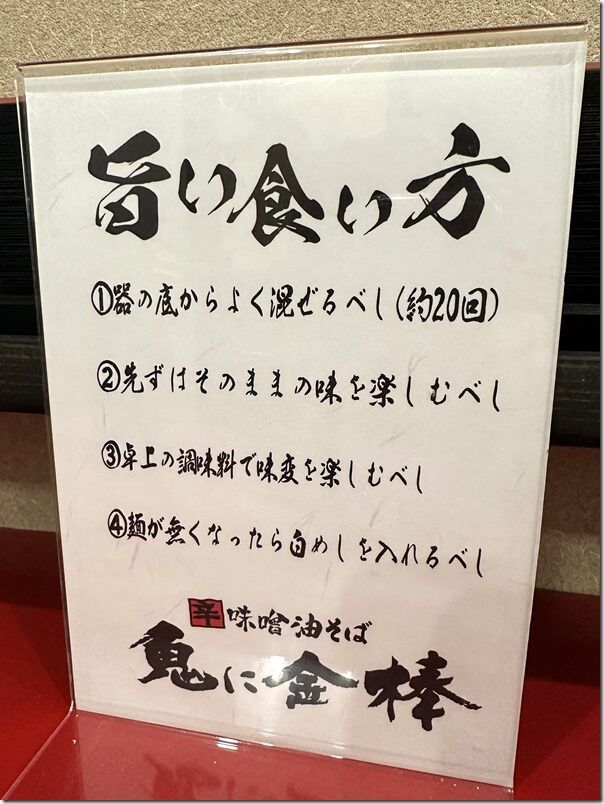 旨い食い方
①器の底からよく混ぜるべし(約20回)
②先ずはそのままの味を楽しむべし
③卓上の調味料で味変を楽しむべし
④麺が無くなったら白めしを入れるべし
辛味噌油そば
鬼に金棒